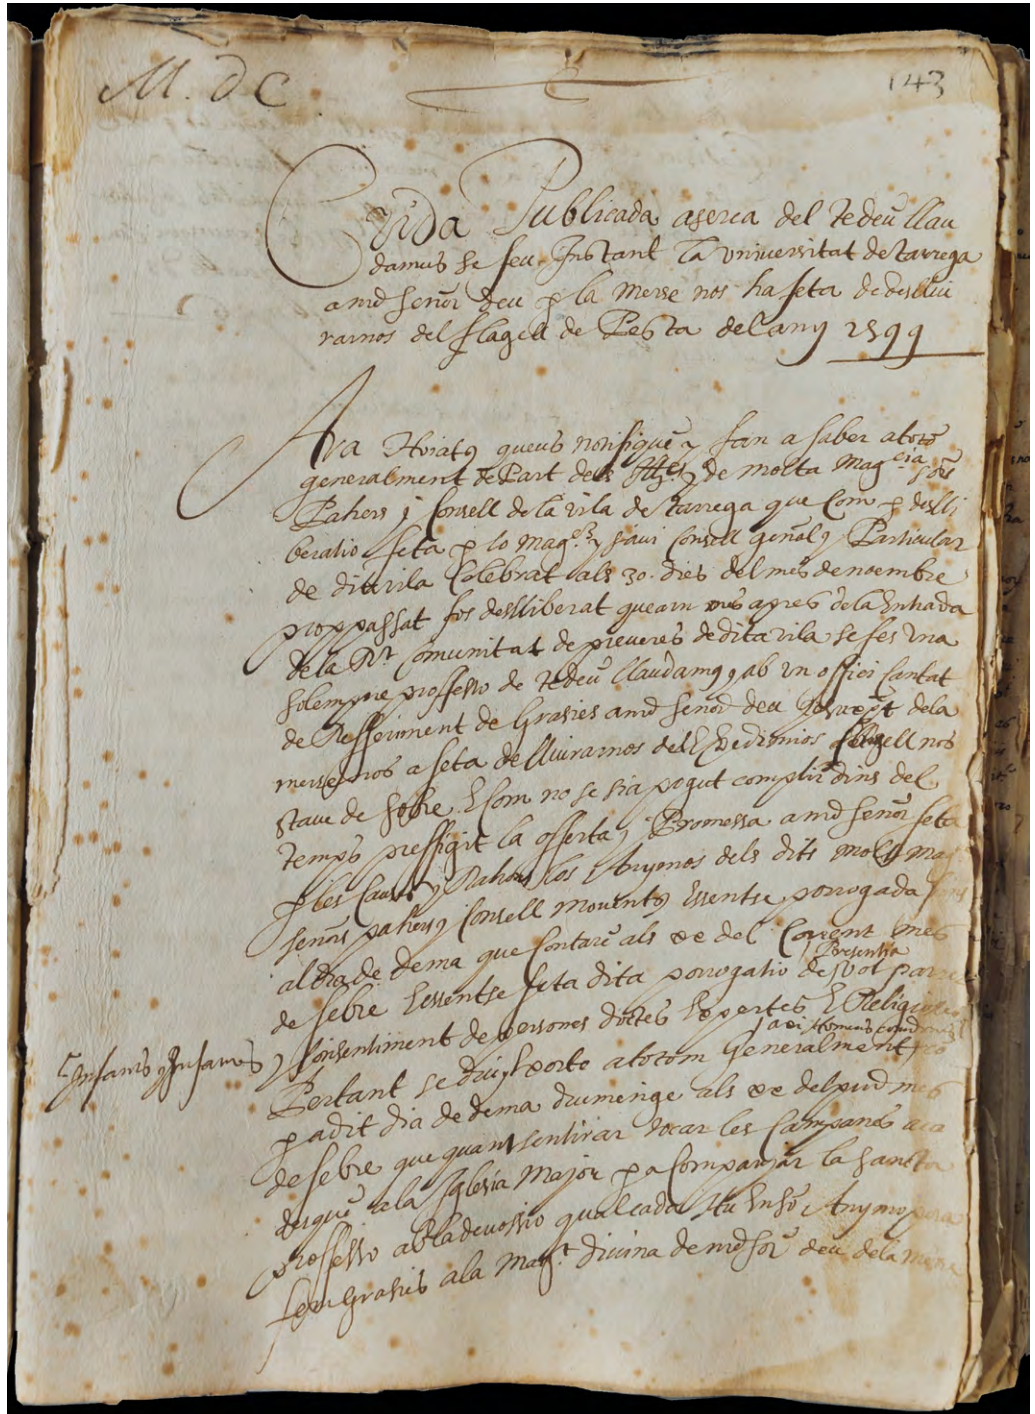 M. d C
143
Crida Publicada aserca del tedeu llau
damus se feu Instant la Vniuersitat de tarrega
a nrẽ señor deu p la merse nos ha feta de deslliu
rarnos del flagell de Pesta del any 1599
Ara Hoiats queus notifique y fan a saber a totõ
generalment de Part dels Illes y de molta Magcia sors
Pahers y Consell de la vila de tarrega que Com p deslli
beratio feta p lo magch y saui Consell geñal y Particular
de dita vila Celebrat als 30. dies del mes de noembre
proppassat fos deslliberat que apres de la Entrada
de la Rt Comunitat de preueres de dita vila se fes vna
solempne proffesso de tedeu llaudamus, ab vn offici cantat
de Refferiment de Grasies a nrẽ señor deu de la
merse nos a feta de lliurarnos del Epedimios flagell nos
staue de sobre. E Com no se sia pogut complir dins del
temps preffigit la offerta y Promessa a nrẽ señor feta
p les Causes y Rahons los Anymos dels dits molt mag
señors pahers y Consell mouents Essentse porrogada
al dia de dema que Contarẽ als xx del Corrent mes
Presentia
de febre Essentse feta dita porrogatio de vot parer
y Consentiment de persones doctes Expertes E Religioses
Infants y Infantes
Pertant se diu y Exorte a totom generalment
p a dit dia de dema diumenge als xx del pnt mes
de febre que quant sentirar tocar les Campanes
degue a la Iglesia Major p a Companyar la sancta
proffesso ab la deuossio qualcada hu En sõ Anymo pora
fent Grasies a la Magt diuina de nrẽ sor deu de la merse